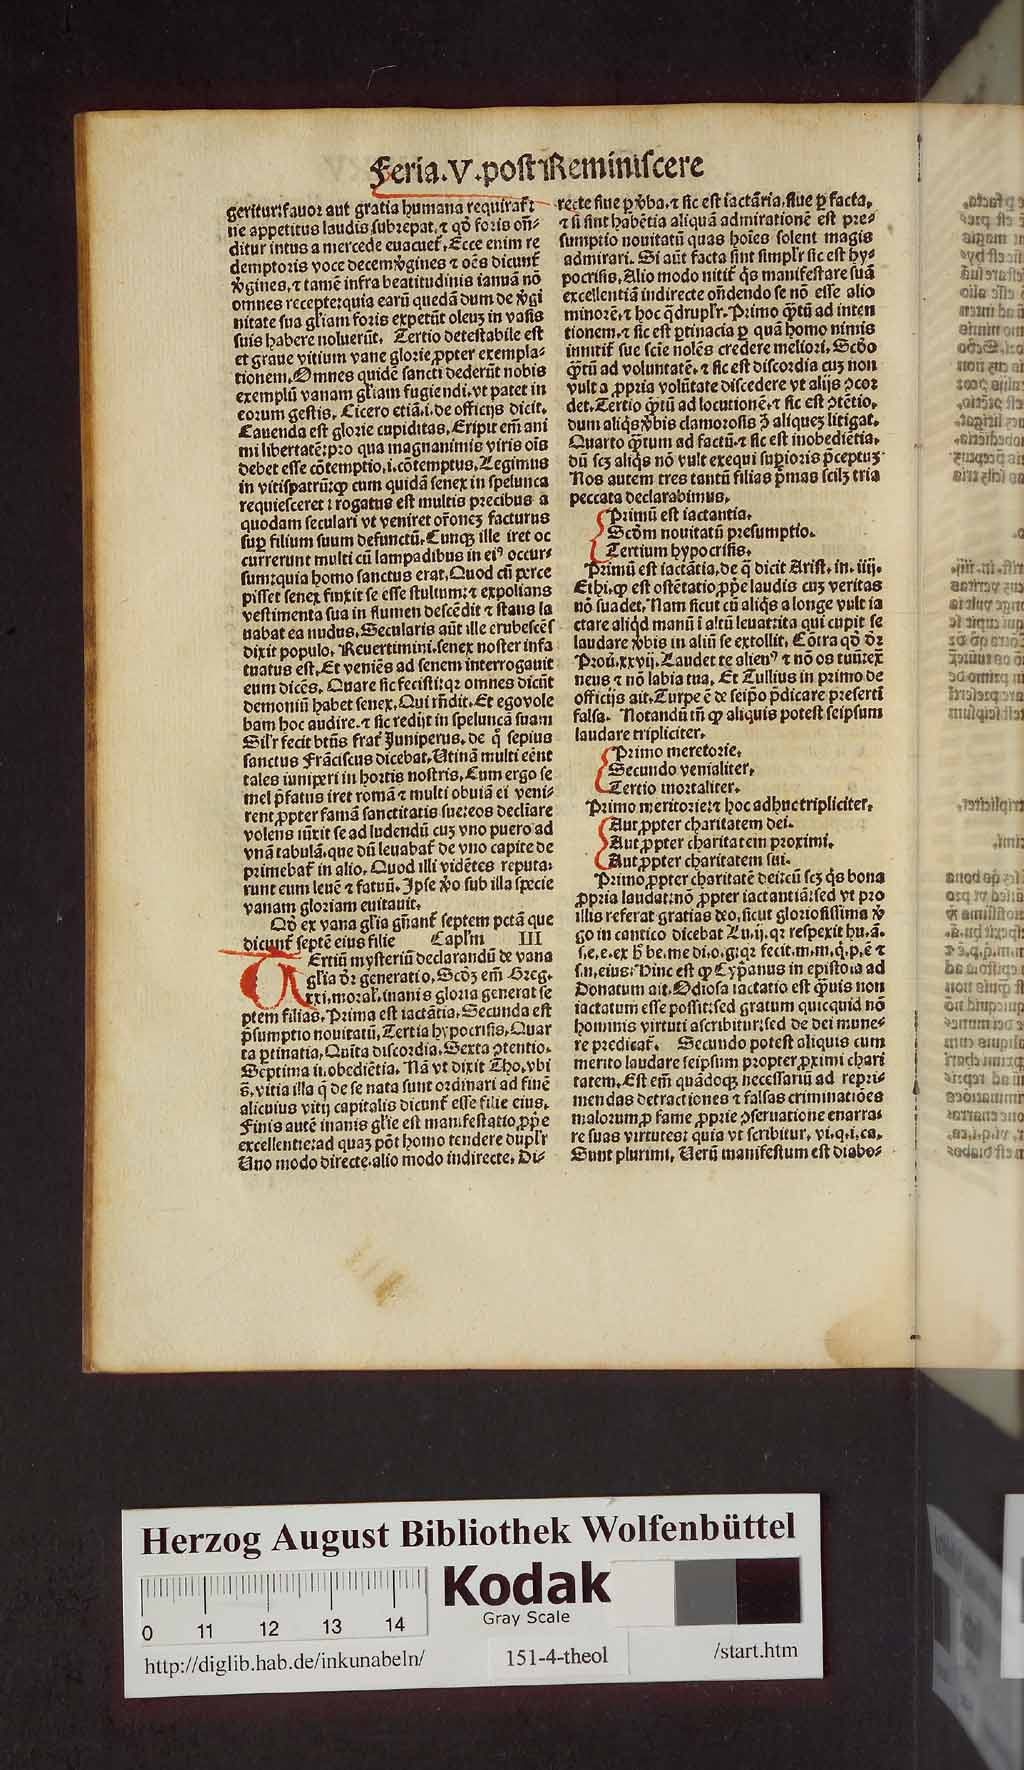 Feria.V.post Reminiscere
gerituriſauor aut gratia humana requiraſ:
ne appetitus laudis ſubrepat,⁊ qđ foris oñ-
ditur intus a mercede euacueſ,Ecce enim re
demptoris voce decem ṽgines ⁊ oẽs dicunſ
ṽgines,⁊ tamẽ infra beatitudinis ianuã nõ
omnes recepte:quia earũ quedã dum de ṽgi
nitate ſua gl̃iam foris expetũt oleuʒ in vaſis
ſuis habere noluerũt, Tertio deteſtabile eſt
et graue vitium vane glorie ꝓpter exempla-
tionem,Omnes quidẽ ſancti dederũt nobis
exemplũ vanam gl̃iam fugiendi,vt patet in
eorum geſtis, Cicero etiã.i.de officijs dicit,
Cauenda eſt glorie cupiditas, Eripit em̃ ani
mi libertatẽ:pro qua magnanimis viris oĩs
debet eſſe cõtemptio,i.cõtemptus,Legimus
in vitiſpatrũ:qꝫ cum quidã ſenex in ſpelunca
requieſceret ⁊ rogatus eſt multis precibus a
quodam ſeculari vt veniret orõneʒ facturus
ſuꝑ filium ſuum defunctũ,Cunqꝫ ille iret oc
currerunt multi cũ lampadibus in eiꝰ occur-
ſum:quia homo ſanctus erat,Quod cũ perce
piſſet ſenex finxit ſe eſſe ſtultum:⁊ expolians
veſtimenta ſua in flumen deſcẽdit ⁊ ſtans la
uabat ea nudus,Secularis aũt ille erubeſcẽs
dixit populo, Reuertimini,ſenex noſter infa
tuatus eſt,Et veniẽs ad ſenem interrogauit
eum dicẽs, Quare ſic feciſti:qꝛ omnes dicũt
demoniũ habet ſenex,Qui rñdit,Et ego vole
bam hoc audire,⁊ ſic redijt in ſpeluncã ſuam
Sil̃r fecit btũs fraſ Juniperus,de q̃ ſepius
ſanctus frãciſcus dicebat,Utinã multi eẽnt
tales iuniperi in hortis noſtris,Cum ergo ſe
mel p̃fatus iret romã ⁊ multi obuiã ei veni-
rent ꝓpter famã ſanctitatis ſue:eos decliare
volens iũxit ſe ad ludendũ cuʒ vno puero ad
vnã tabulã,que dũ leuabaſ de vno capite de
primebaſ in alio,Quod illi vidẽtes reputa-
runt eum leuẽ ⁊ fatuũ,Ipſe ṽo ſub illa ſpecie
vanam gloriam euitauit,
Qđ ex vana gl̃ia gñanſ ſeptem pctã que
dicunſ ſeptẽ eius filie Capl̃m III
TErtiũ myſteriũ declarandũ de vana
gl̃ia dr̃ generatio,Scđʒ em̃ Greg.
xxi.moral̃.inanis gloria generat ſe
ptem filias,Prima eſt iactãtia,Secunda eſt
p̃ſumptio nouitatũ,Tertia hypocriſis,Quar
ta ꝑtinatia,Quĩta diſcordia,Sexta ↄtentio,
Septima ii.obediẽtia, Nã vt dixit Tho.vbi
s̃.vitia illa q̃ de ſe nata ſunt ordinari ad finẽ
alicuius vitij capitalis dicunſ eſſe filie eius,
Finis autẽ inanis gl̃ie eſt manifeſtatio ꝓp̃e
excellentie:ad quaʒ põt homo tendere dupl̃r
Uno modo directe,alio modo indirecte, Di-
recte ſiue ꝑ ṽba,⁊ ſic eſt iactãria,ſiue ꝑ facta,
⁊ ſi ſint habẽtia aliquã admirationẽ eſt pre-
ſumptio nouitatũ quas hoĩes ſolent magis
admirari. Si aũt facta ſint ſimpl̃r ſic eſt hy-
pocriſis,Alio modo nitiſ q̃s manifeſtare ſuã
excellentiã indirecte oñdendo ſe nõ eſſe alio
minorẽ,⁊ hoc q̃drupl̃r.Primo q̃ꝫtũ ad inten
tionem,⁊ ſic eſt ꝑtinacia ꝑ quã homo nimis
innitiſ ſue ſcĩe nolẽs credere meliori,Scđo
q̃ꝫtũ ad voluntatẽ,⁊ ſic eſt diſcordia cuʒ non
vult a ꝓpria volũtate diſcedere vt alijs ↄcor
det,Tertio q̃ꝫtũ ad locutionẽ,⁊ ſic eſt ↄtẽtio,
dum aliq̃s ṽbis clamoroſis ↄ̃ aliqueʒ litigat,
Quarto q̃ꝫtum ad factũ,⁊ ſic eſt inobediẽtia,
dũ ſcʒ aliq̃s nõ vult exequi ſuꝑioris p̃ceptuʒ
Nos autem tres tantũ filias p̃mas ſcilʒ tria
peccata declarabimus,
Primũ eſt iactantia,
Scđm nouitatũ preſumptio.
Tertium hypocriſis,
Primũ eſt iactãtia,de q̃ dicit Ariſt.in.iiij.
Ethi.qꝫ eſt oſtẽtatio ꝓp̃e laudis cuʒ veritas
nõ ſuadet,Nam ſicut cũ aliq̃s a longe vult ia
ctare aliq̃d manũ ĩ altũ leuat:ita qui cupit ſe
laudare ṽbis in aliũ ſe extollit, Cõtra qđ dr̃
Prou.xxvij.Laudet te alienꝰ ⁊ nõ os tuũ:ex̃
neus ⁊ nõ labia tua, Et Tullius in primo de
officijs ait,Turpe ẽ de ſeip̃o p̃dicare preſertĩ
falſa, Notandũ tñ qꝫ aliquis poteſt ſeipſum
laudare tripliciter,
Primo meretorie,
Secundo venialiter,
Tertio mortaliter,
Primo meritorie:⁊ hoc adhuc tripliciter,
Aut ꝓpter charitatem dei.
Aut ꝓpter charitatem proximi,
Aut ꝓpter charitatem ſui.
Primo ꝓpter charitatẽ dei:cũ ſcʒ q̃s bona
ꝓpria laudat:nõ ꝓpter iactantiã:ſed vt pro
illis referat gratias deo,ſicut glorioſiſſima ṽ
go in cantico dicebat Lu.ij.qꝛ reſpexit hu.ã.
ſ.e.e.ex h̃ be.me di.o.g:qꝛ fecit.m.m.q̃.p.ẽ ⁊
ſ.n.eius:Hinc eſt qꝫ Cypanus in epiſtola ad
Donatum ait,Odioſa iactatio eſt q̃ꝫuis non
iactatum eſſe poſſit:ſed gratum quicquid nõ
hominis virtuti aſcribitur:ſed de dei mune-
re predicaſ. Secundo poteſt aliquis cum
merito laudare ſeipſum propter ꝓximi chari
tatem,Eſt em̃ quãdoqꝫ neceſſariũ ad repri-
mendas detractiones ⁊ falſas criminatiões
malorum:ꝓ fame ꝓprie ↄſeruatione enarra-
re ſuas virtutes: quia vt ſcribitur, vi.q.i.ca.
Sunt plurimi, Uerũ manifeſtum eſt diabo-
Herzog August Bibliothek Wolfenbüttel
Kodak
Gray Scale
0 11 12 13 14
http://diglib.hab.de/inkunabeln/ 151-4-theol /start.htm